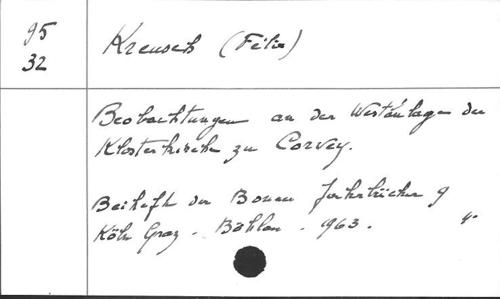 95
32
Kreusch (Felix)
Beobachtungen an der Westanlage der
Klosterkirche zu Corvey.
Beiheft der Bonner Jahrbücher 9
Köln Graz - Böhlau - 1963.
4°